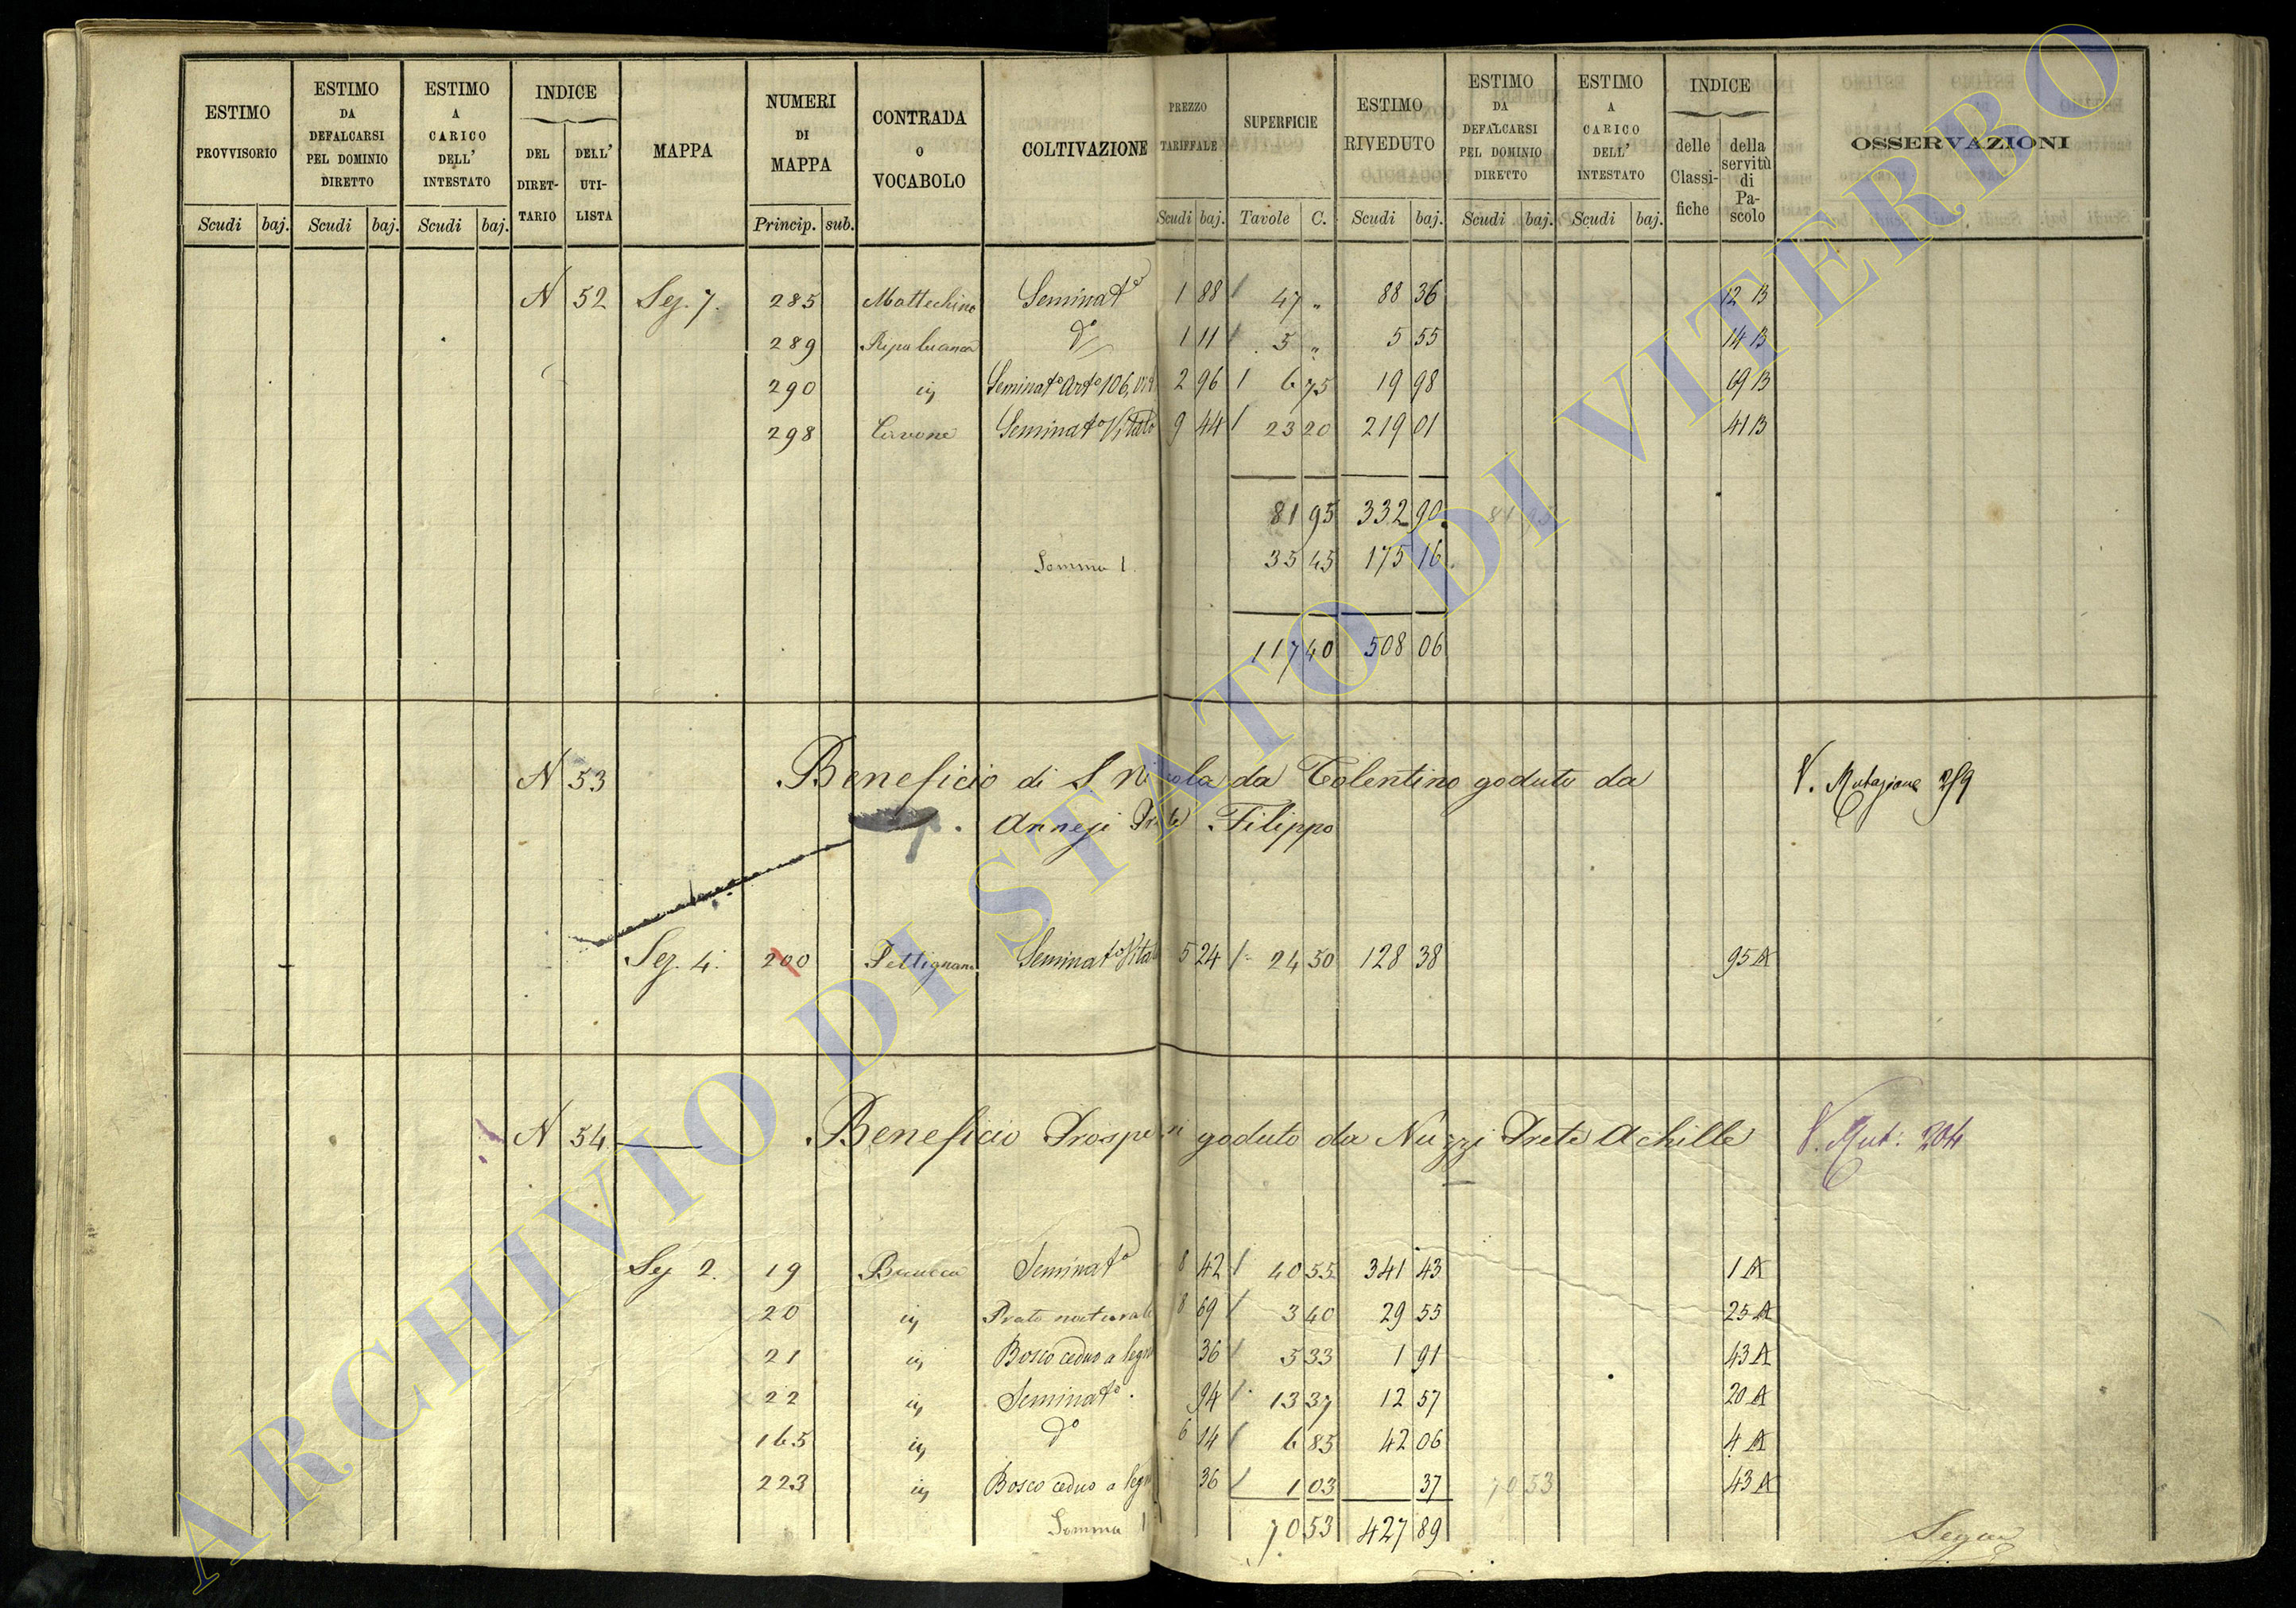 ESTIMO PROVVISORIO Scudi baj.
ESTIMO DA DEFALCARSI PEL DOMINIO DIRETTO Scudi baj.
ESTIMO A CARICO DELL' INTESTATO Scudi baj.
INDICE DEL DIRET-TARIO DELL' UTI-LISTA
MAPPA
NUMERI DI MAPPA Princip. sub.
CONTRADA O VOCABOLO
COLTIVAZIONE
PREZZO TARIFFALE Scudi baj.
SUPERFICIE Tavole C.
ESTIMO RIVEDUTO Scudi baj.
ESTIMO DA DEFALCARSI PEL DOMINIO DIRETTO Scudi baj.
ESTIMO A CARICO DELL' INTESTATO Scudi baj.
INDICE delle Classi-fiche della servitù di Pa-scolo
OSSERVAZIONI
N 52 Sez. 7. 285 Seminat° 1 88 47 " 88 36 12 B
289 d° 1 11 5 " 5 55 14 B
290 Seminat° 2 96 6 75 19 98 69 B
298 Seminat° Vitato 9 44 23 20 219 01 41 B
81 95 332 90
Somma 1 35 45 175 16
117 40 508 06
N 53 Beneficio di S. Nicola da Tolentino goduto da V. Mutazione 259
Filippo
Sez. 4. 200 Pettignano Seminat° Vitato 5 24 24 50 128 38 95 A
N 54 Beneficio Prosperi goduto da Nuzzi Prete Achille V. Mut. 204
Sez 2. 19 Seminat° 8 42 40 55 341 43 1 A
20 Prato naturale 8 69 3 40 29 55 25 A
21 Bosco ceduo a legn 36 5 33 1 91 43 A
22 Seminat° 94 13 37 12 57 20 A
165 d° 6 14 6 85 42 06 4 A
223 Bosco ceduo a legn 36 1 03 37 70 53 43 A
Somma 1 70 53 427 89
Segue
ARCHIVIO DI STATO DI VITERBO